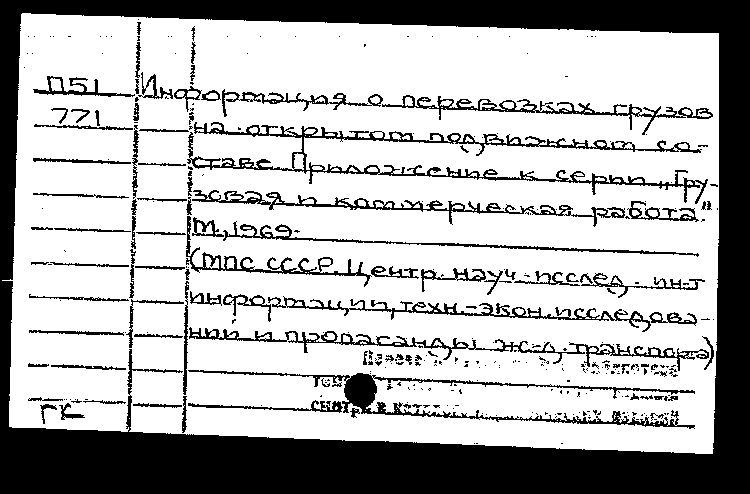 П51 Информация о перевозках грузов
771 на открытом подвижном со-
ставе. Приложение к серии „Гру-
зовая и коммерческая работа."
М., 1969.
(МПС СССР. Центр. науч.-исслед. ин-т
информации, техн.-экон. исследова-
ний и пропаганды ж.-д. транспорта)
библиотеке
смотри в
ГК